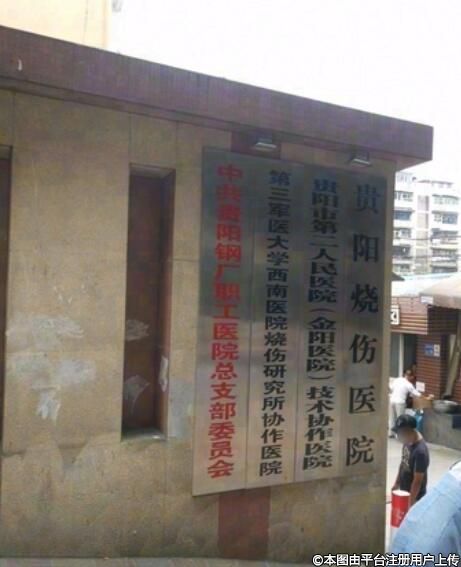 贵阳烧伤医院
贵阳市第二人民医院（金阳医院）技术协作医院
第三军医大学西南医院烧伤研究所协作医院
中共贵阳钢厂职工医院总支部委员会
©本图由平台注册用户上传